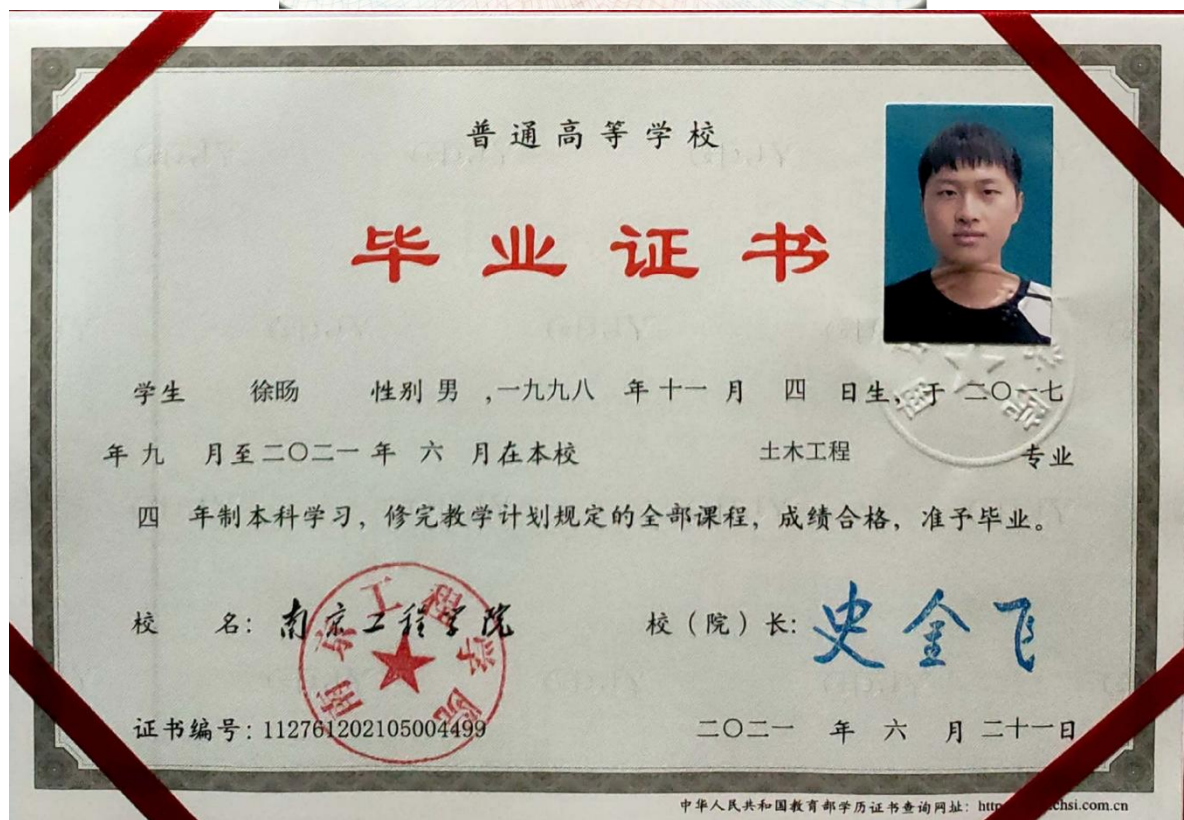 普通高等学校
毕业证书
学生 徐旸 性别 男 ,一九九八 年 十一 月 四 日生，于 二〇一七
年 九 月至 二〇二一 年 六 月在本校 土木工程 专业
四 年制本科学习，修完教学计划规定的全部课程，成绩合格，准予毕业。
校 名：南京工程学院 校（院）长：史金飞
南京工程学院
证书编号：112761202105004499 二〇二一 年 六 月 二十一日
中华人民共和国教育部学历证书查询网址：http chsi.com.cn